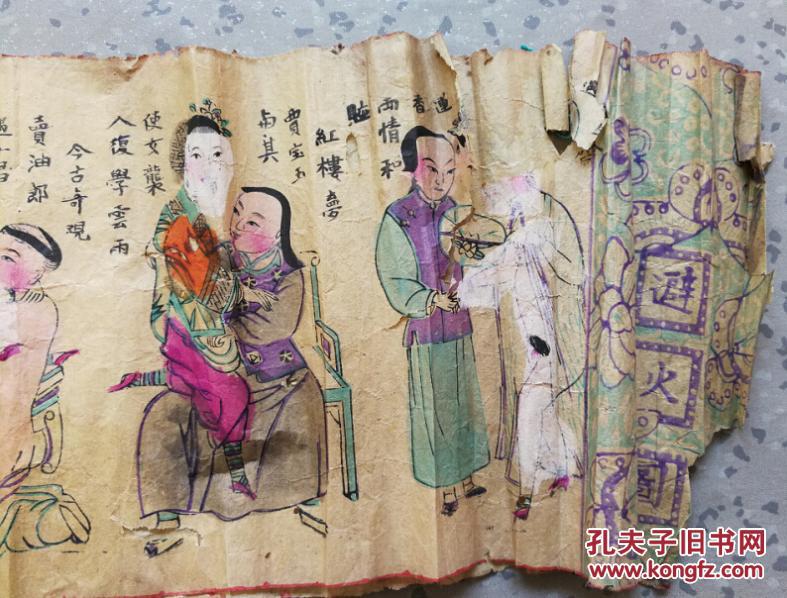 避火圖
蓮香
兩情和
紅樓夢
賈宝玉
与其
使女襲
人復學雲雨
今古奇現
賣油郎
孔夫子旧书网
www.kongfz.com